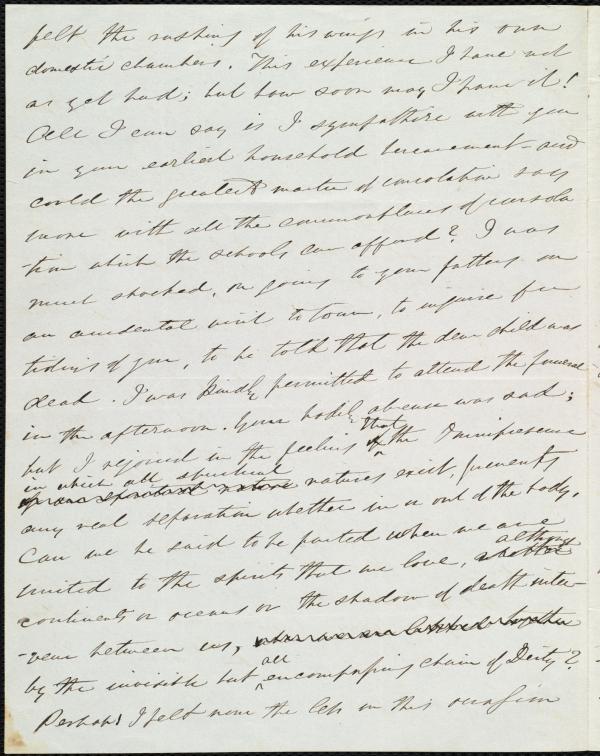 felt the rushing of his wings in his own
domestic chambers. This experience I have not
as yet had; but how soon may I have it!
All I can say is I sympathize with you
in your earliest household bereavement - and
could the greatest master of consolation say
more with all the commonplaces of consola
-tion which the schools can afford? I was
much shocked, on going to your fathers on
an accidental visit to town, to inquire for
tidings of you, to be told that the dear child was
dead. I was kindly permitted to attend the funeral
in the afternoon. Your bodily absence was sad;
but I rejoiced in the feeling that the Omnipresence
in which all spiritual
natures exist, prevents
any real separation whether in or out of the body.
Can we be said to be parted when we are
united to the spirits that we love, although
continents or oceans or the shadow of death inter-
-vene between us,
by the invisible but all encompassing chain of Deity?
Perhaps I felt none the less on this occasion